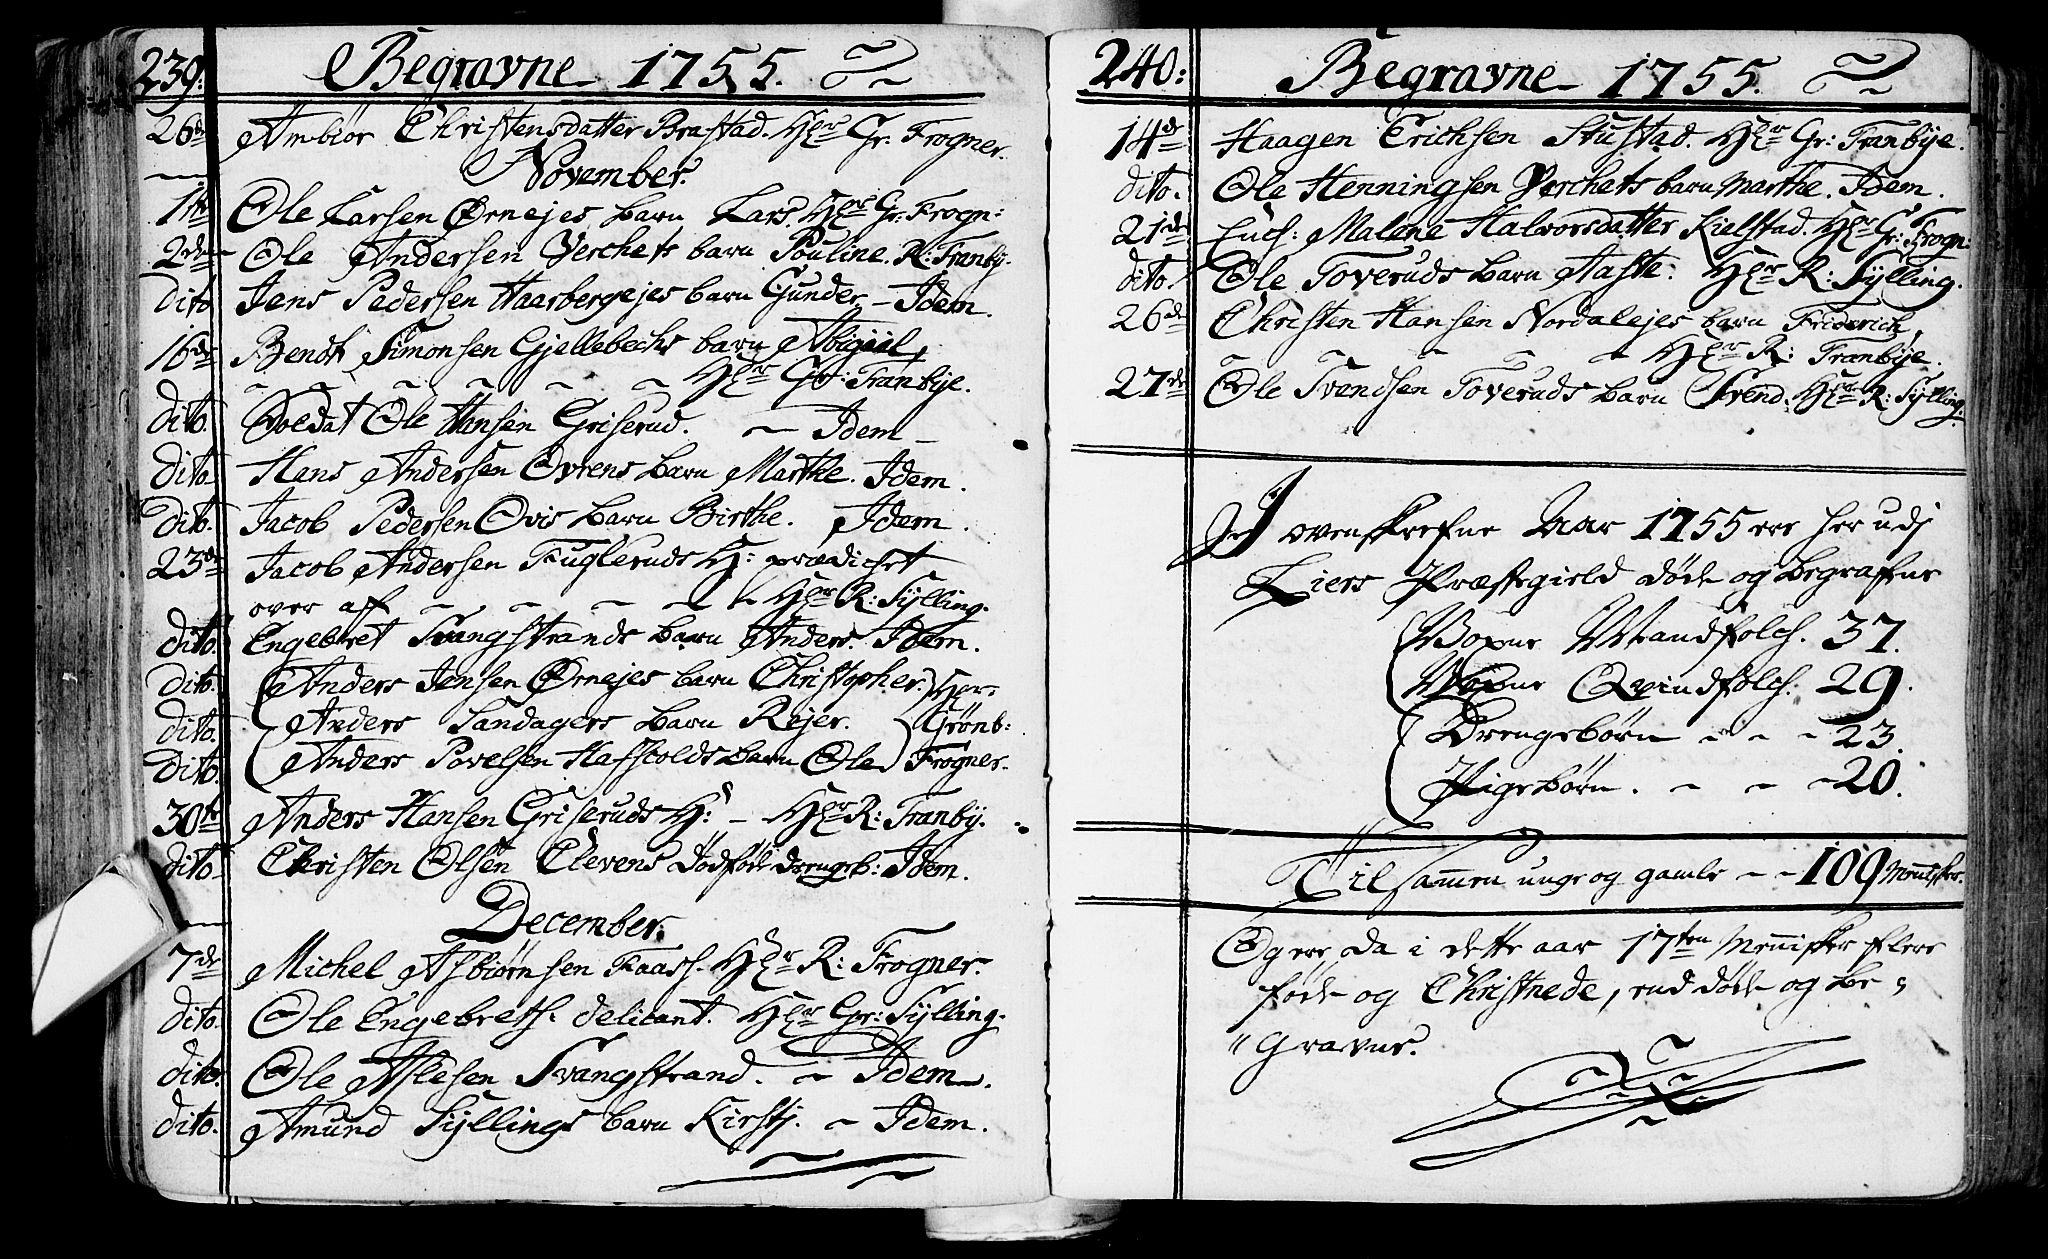 239: Begravne 1755.
26de Ambiør Christensdatter Brastad. Hr Gr. Frogner.
November.
1ste Ole Larsen Ørnejes barn Lars. Hr Gr: Frogn:
2de Ole Andersen Verchets barn Pouline. R: Tranby.
dito Jens Pedersen Haarbergejes barn Gunder. – Idem.
16de Bendt Simonsen Gjellebechs barn Abigael,
Hr Gr: Tranbye.
dito. Soldat Ole Hansen Griserud. – Idem –
dito. Hans Andersen Ovrens barn Marthe. Idem.
dito. Jacob Pedersen Ovis barn Birthe. Idem.
23de Jacob Andersen Fugleruds H: prædicket
over af – – – – – Hr R: Sylling.
dito. Engebret Svangstrands barn Anders. Idem.
dito. Anders Jensen Ørnejes barn Christopher. Her
dito. Anders Sandagers barn Rejer. Grønb:
dito. Anders Povelsen Hafskolds barn Ole. Frogner.
30te Anders Hansen Griseruds H: – Hr R: Tranby.
dito. Christen Olsen Clevens dødfødt drengeb: Idem.
December.
7de Michel Asbiørnsen Faass. Hr R: Frogner.
dito. Ole Engebrets. delicant. Hr Gr: Sylling.
dito. Ole Aslesen Svangstrand. – Idem.
dito. Amund Syllings barn Kirstj. – Idem.
240: Begravne 1755.
14de Haagen Erichsen Stustad. Hr Gr: Tranbye.
dito. Ole Henningsen Verchets barn Marthe. Idem.
21de Euch: Malene Halvorsdatter Kielstad. Hr Gr: Frogn:
dito. Ole Toveruds barn Aaste. Hr R: Sylling.
26de Christen Hansen Nordalejes barn Friderich,
– – – – – Hr R: Tranbye.
27de Ole Svendsen Toveruds barn Svend. Hr R: Sylling.
J ovenskrefne Aar 1755 ere her udj
Liers Præstegield døde og begrafne
Voxne Mandfolch. 37.
Voxne Qvindfolch: 29.
Drengebørn – – – 23.
Pigebørn. – – – 20.
Tilsammen unge og gamle – – 109 Mennisker.
Og ere, da i dette aar 17ten Mennisker flere
føde og Christnede, end døde og be =
" gravne.